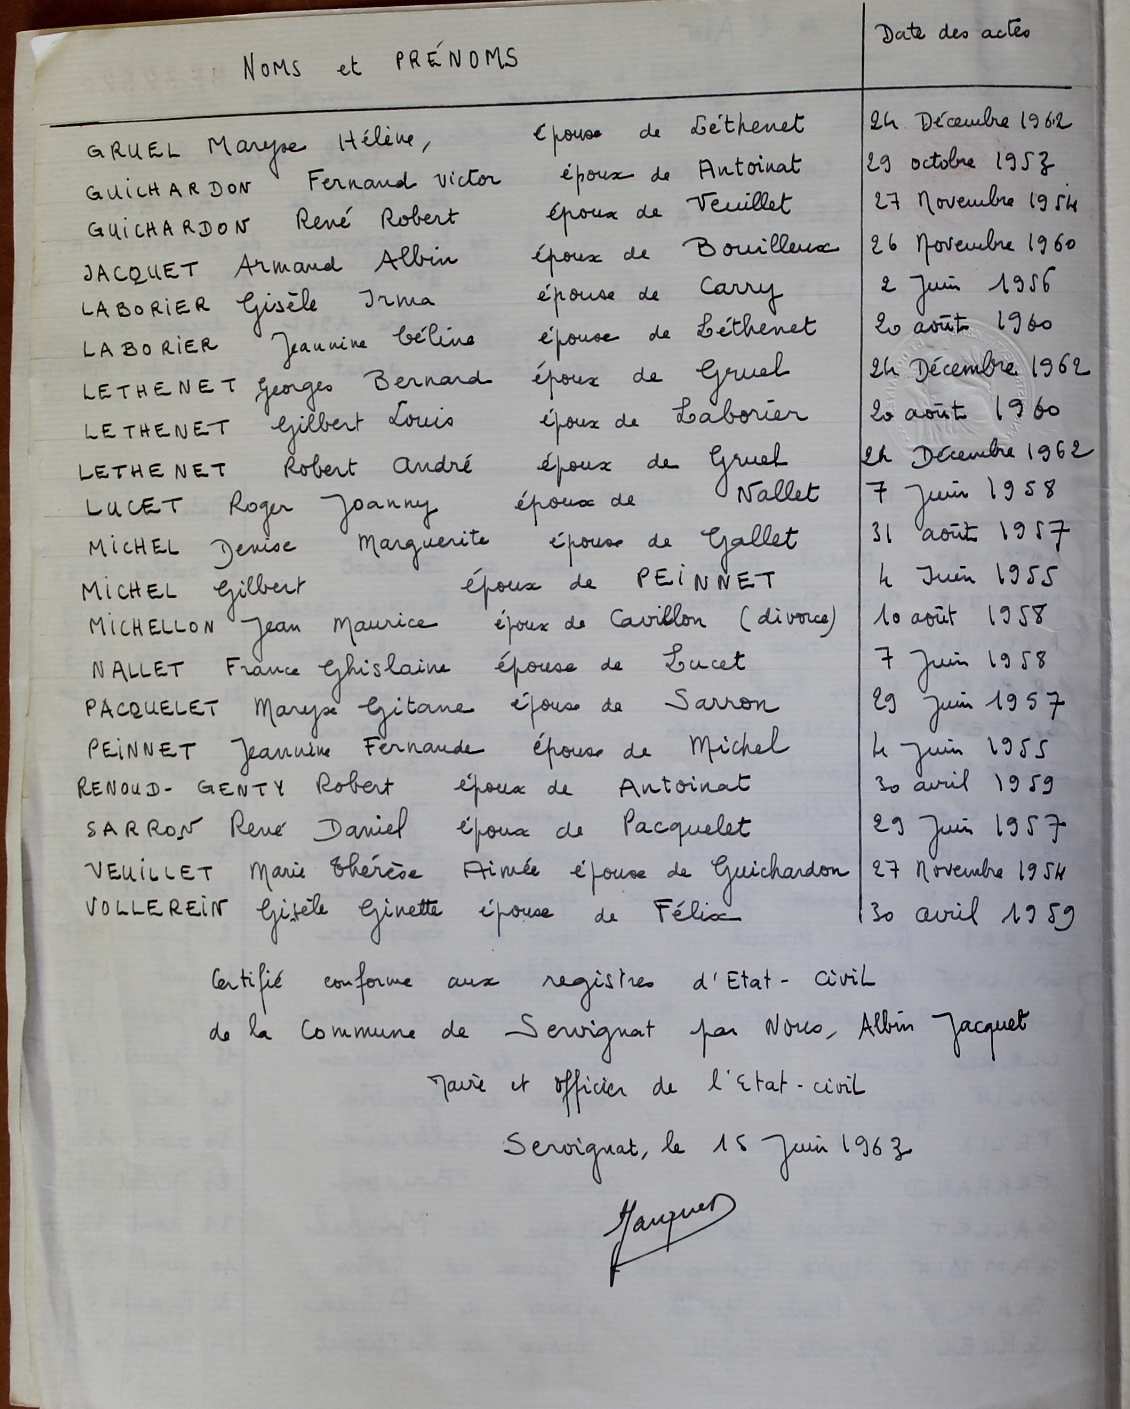 NOMS et PRÉNOMS Date des actes
GRUEL Maryse Hélène, épouse de Léthenet 24 Décembre 1962
GUICHARDON Fernand Victor époux de Antoinat 29 octobre 1953
GUICHARDON René Robert époux de Veuillet 27 Novembre 1954
JACQUET Armand Albin époux de Bouilleux 26 Novembre 1960
LABORIER Gisèle Irma épouse de Carry 2 Juin 1956
LABORIER Jeannine Céline épouse de Léthenet 20 août 1960
LETHENET Georges Bernard époux de Gruel 24 Décembre 1962
LETHENET Gilbert Louis époux de Laborier 20 août 1960
LETHENET Robert André époux de Gruel 24 Décembre 1962
LUCET Roger Joanny époux de Nallet 7 Juin 1958
MICHEL Denise Marguerite épouse de Gallet 31 août 1957
MICHEL Gilbert époux de PEINNET 4 Juin 1955
MICHELLON Jean Maurice époux de Cavillon (divorce) 10 août 1958
NALLET France Ghislaine épouse de Lucet 7 Juin 1958
PACQUELET Maryse Gitane épouse de Sarron 29 Juin 1957
PEINNET Jeannine Fernande épouse de Michel 4 Juin 1955
RENOUD-GENTY Robert époux de Antoinat 30 avril 1959
SARRON René Daniel époux de Pacquelet 29 Juin 1957
VEUILLET Marie Thérèse Aimée épouse de Guichardon 27 Novembre 1954
VOLLEREIN Gisèle Ginette épouse de Félix 30 avril 1959
Certifié conforme aux registres d'Etat-Civil
de la Commune de Servignat par Nous, Albin Jacquet
Maire et officier de l'Etat-civil
Servignat, le 15 Juin 1963
Jacquet